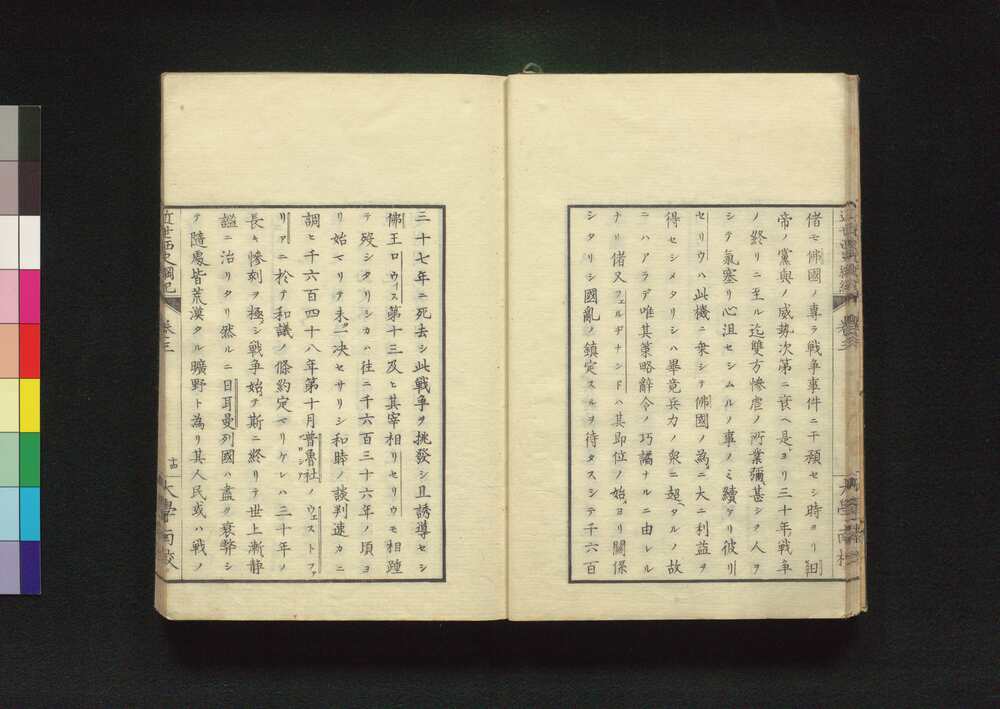 偖モ佛國ノ専ラ戦争事件ニ干預セシ時ヨリ旧
帝ノ黨與ノ威勢次第ニ衰ヘ是ヨリ三十年戦争
ノ終リニ至ル迄雙方惨虐ノ所業彌甚シク人ヲ
シテ氣塞リ心沮セシムルノ事ノミ續ケリ彼リ
セリウハ此機ニ乗シテ佛國ノ為ニ大ニ利益ヲ
得セシメタリシハ畢竟兵力ノ衆ニ超タルノ故
ニハアラデ唯其策略辭令ノ巧譎ナルニ由レル
ナリ偖又フェルヂナンドハ其即位ノ始ヨリ關係
シタリシ國亂ノ鎮定スルヲ待タスシテ千六百
三十七年ニ死去シ此戦争ヲ挑發シ且誘導セシ
佛王ロウィス第十三及ヒ其宰相リセリウモ相踵
テ歿シタリシカハ往ニ千六百三十六年ノ頃ヨ
リ始マリテ未一决セサリシ和睦ノ談判速カニ
調ヒ千六百四十八年第十月普魯社ノウェストファ
リアニ於テ和議ノ條約定マリケレハ三十年ノ
長キ惨刻ヲ極シ戦争始テ斯ニ終リテ世上漸静
謐ニ治リタリ然ルニ日耳曼列國ハ盡ク衰弊シ
テ隨處皆荒漠タル曠野ト為リ其人民或ハ戦ノ
近世西史綱紀 卷三 十四 大學南校